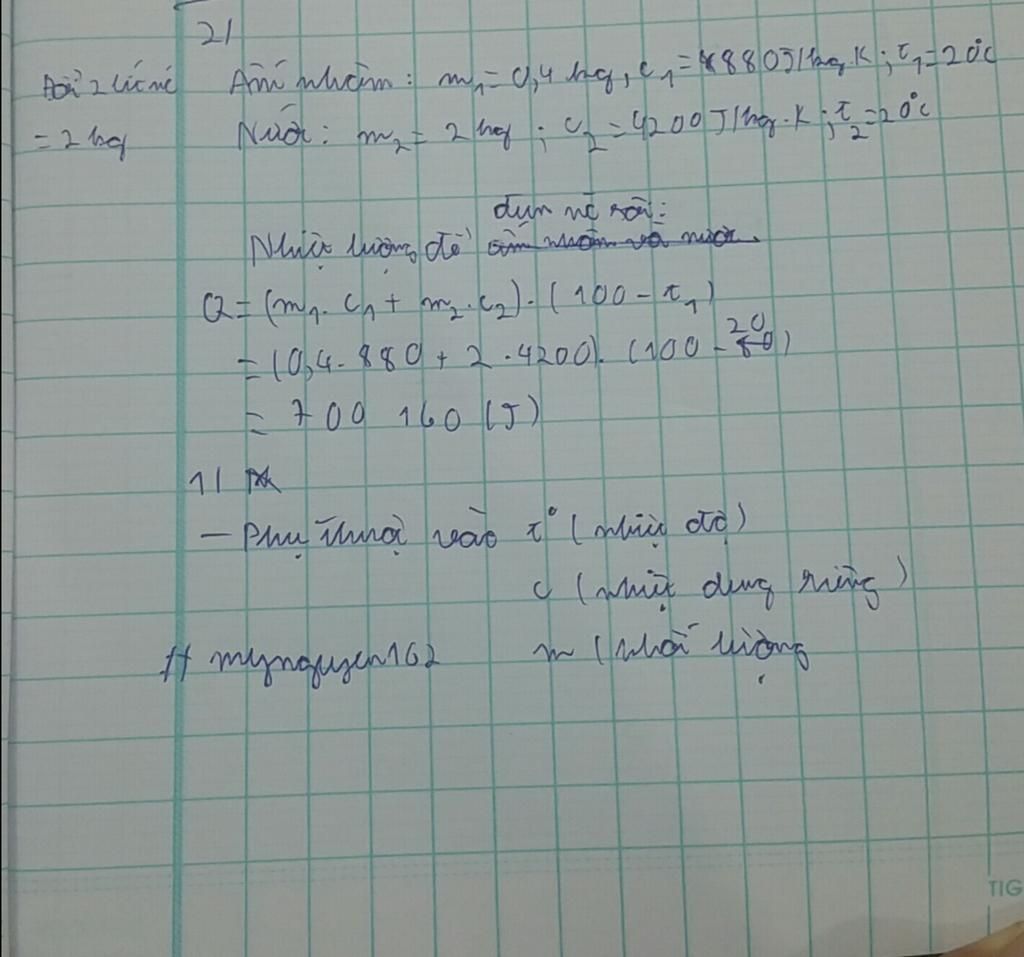 2/
Đổi 2 lít nc
= 2 kg
Ấm nhôm: m₁ = 0,4 kg, c₁ = 880J/kg.K; t₁ = 20°C
Nước: m₂ = 2 kg; c₂ = 4200J/kg.K; t₂ = 20°C
đun nc sôi:
Nhiệt lượng để ấm nhôm và nước
Q = (m₁.c₁ + m₂.c₂).(100 - t₁)
= (0,4.880 + 2.4200).(100 - 20)
= 700 160 (J)
1/
– Phụ thuộc vào t° (nhiệt độ)
c (nhiệt dung riêng)
m (khối lượng
# mynguyen162
TIG